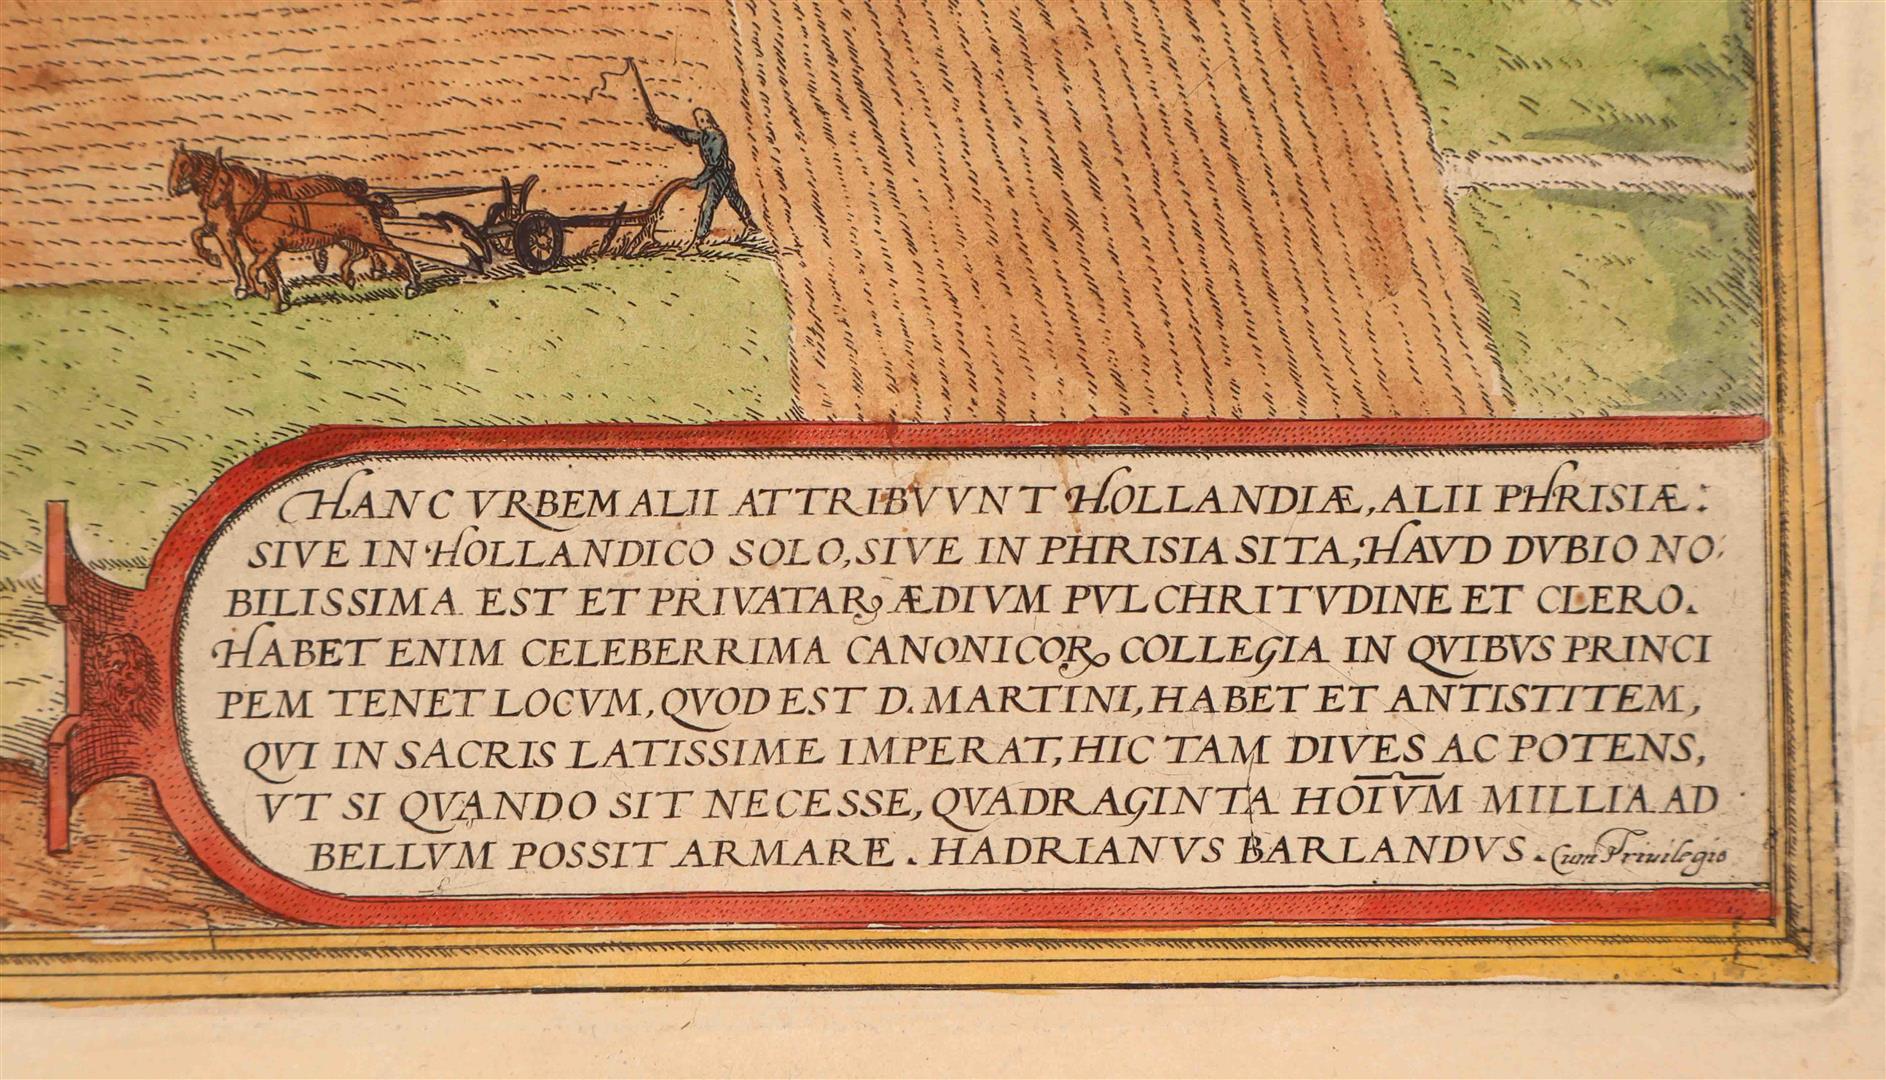 HANC VRBEM ALII ATTRIBVVNT HOLLANDIÆ, ALII PHRISIÆ:
SIVE IN HOLLANDICO SOLO, SIVE IN PHRISIA SITA, HAVD DVBIO NO:
BILISSIMA EST ET PRIVATAꝜ ÆDIVM PVLCHRITVDINE ET CLERO.
HABET ENIM CELEBERRIMA CANONICOꝜ COLLEGIA IN QVIBVS PRINCI
PEM TENET LOCVM, QVOD EST D. MARTINI, HABET ET ANTISTITEM,
QVI IN SACRIS LATISSIME IMPERAT, HIC TAM DIVES AC POTENS,
VT SI QVANDO SIT NECESSE, QVADRAGINTA HOĪV̄M MILLIA AD
BELLVM POSSIT ARMARE. HADRIANVS BARLANDVS. Cum Priuilegio